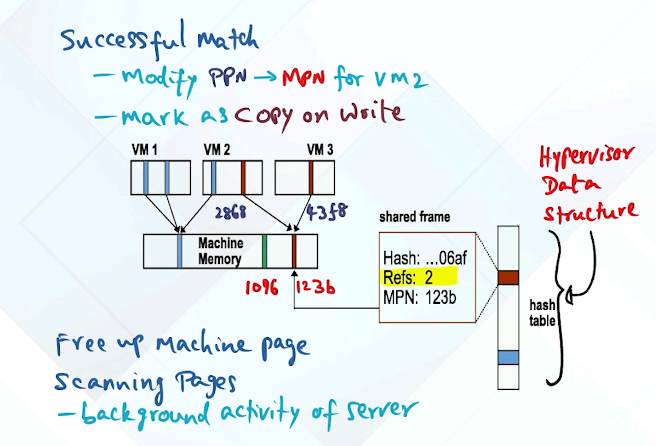 Successful Match
– Modify PPN → MPN for VM2
– mark as Copy on Write
VM 1
VM 2
VM 3
2868
43f8
Machine
Memory
1096
123b
shared frame
Hash: ...06af
Refs: 2
MPN: 123b
Hypervisor
Data
Structure
hash
table
Free up Machine page
Scanning Pages
– background activity of server